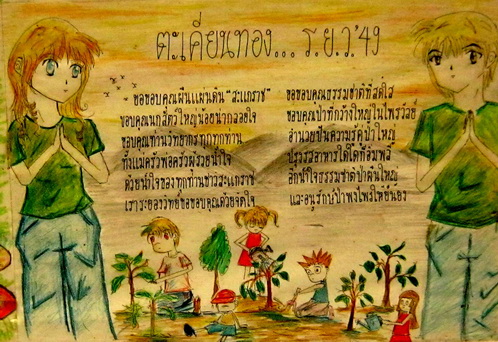 ตะเคียนทอง... ร.ย.ว.'49
ขอขอบคุณผืนแผ่นดิน "สะแกราช"
ขอบคุณนกสัตว์ใหญ่น้อยน่ากลอยใจ
ขอบคุณท่านวิทยากรทุกทุกท่าน
ทั้งแม่ครัวพ่อครัวผู้รวยน้ำใจ
ด้วยน้ำใจของทุกท่านชาวสะแกราช
เราระยองวิทย์ขอขอบคุณด้วยจิตใจ
ขอขอบคุณธรรมชาติที่สดใส
ขอบคุณป่าที่กว้างใหญ่ในไพรวัลย์
อำนวยปันความรู้ป่าใหญ่
ปรุงรสอาหารได้โดที่อิ่มพี
อีกน้ำใจธรรมชาติป่าต้นใหญ่
และอนุรักษ์ป่าพงไพรให้ยั่งยืน